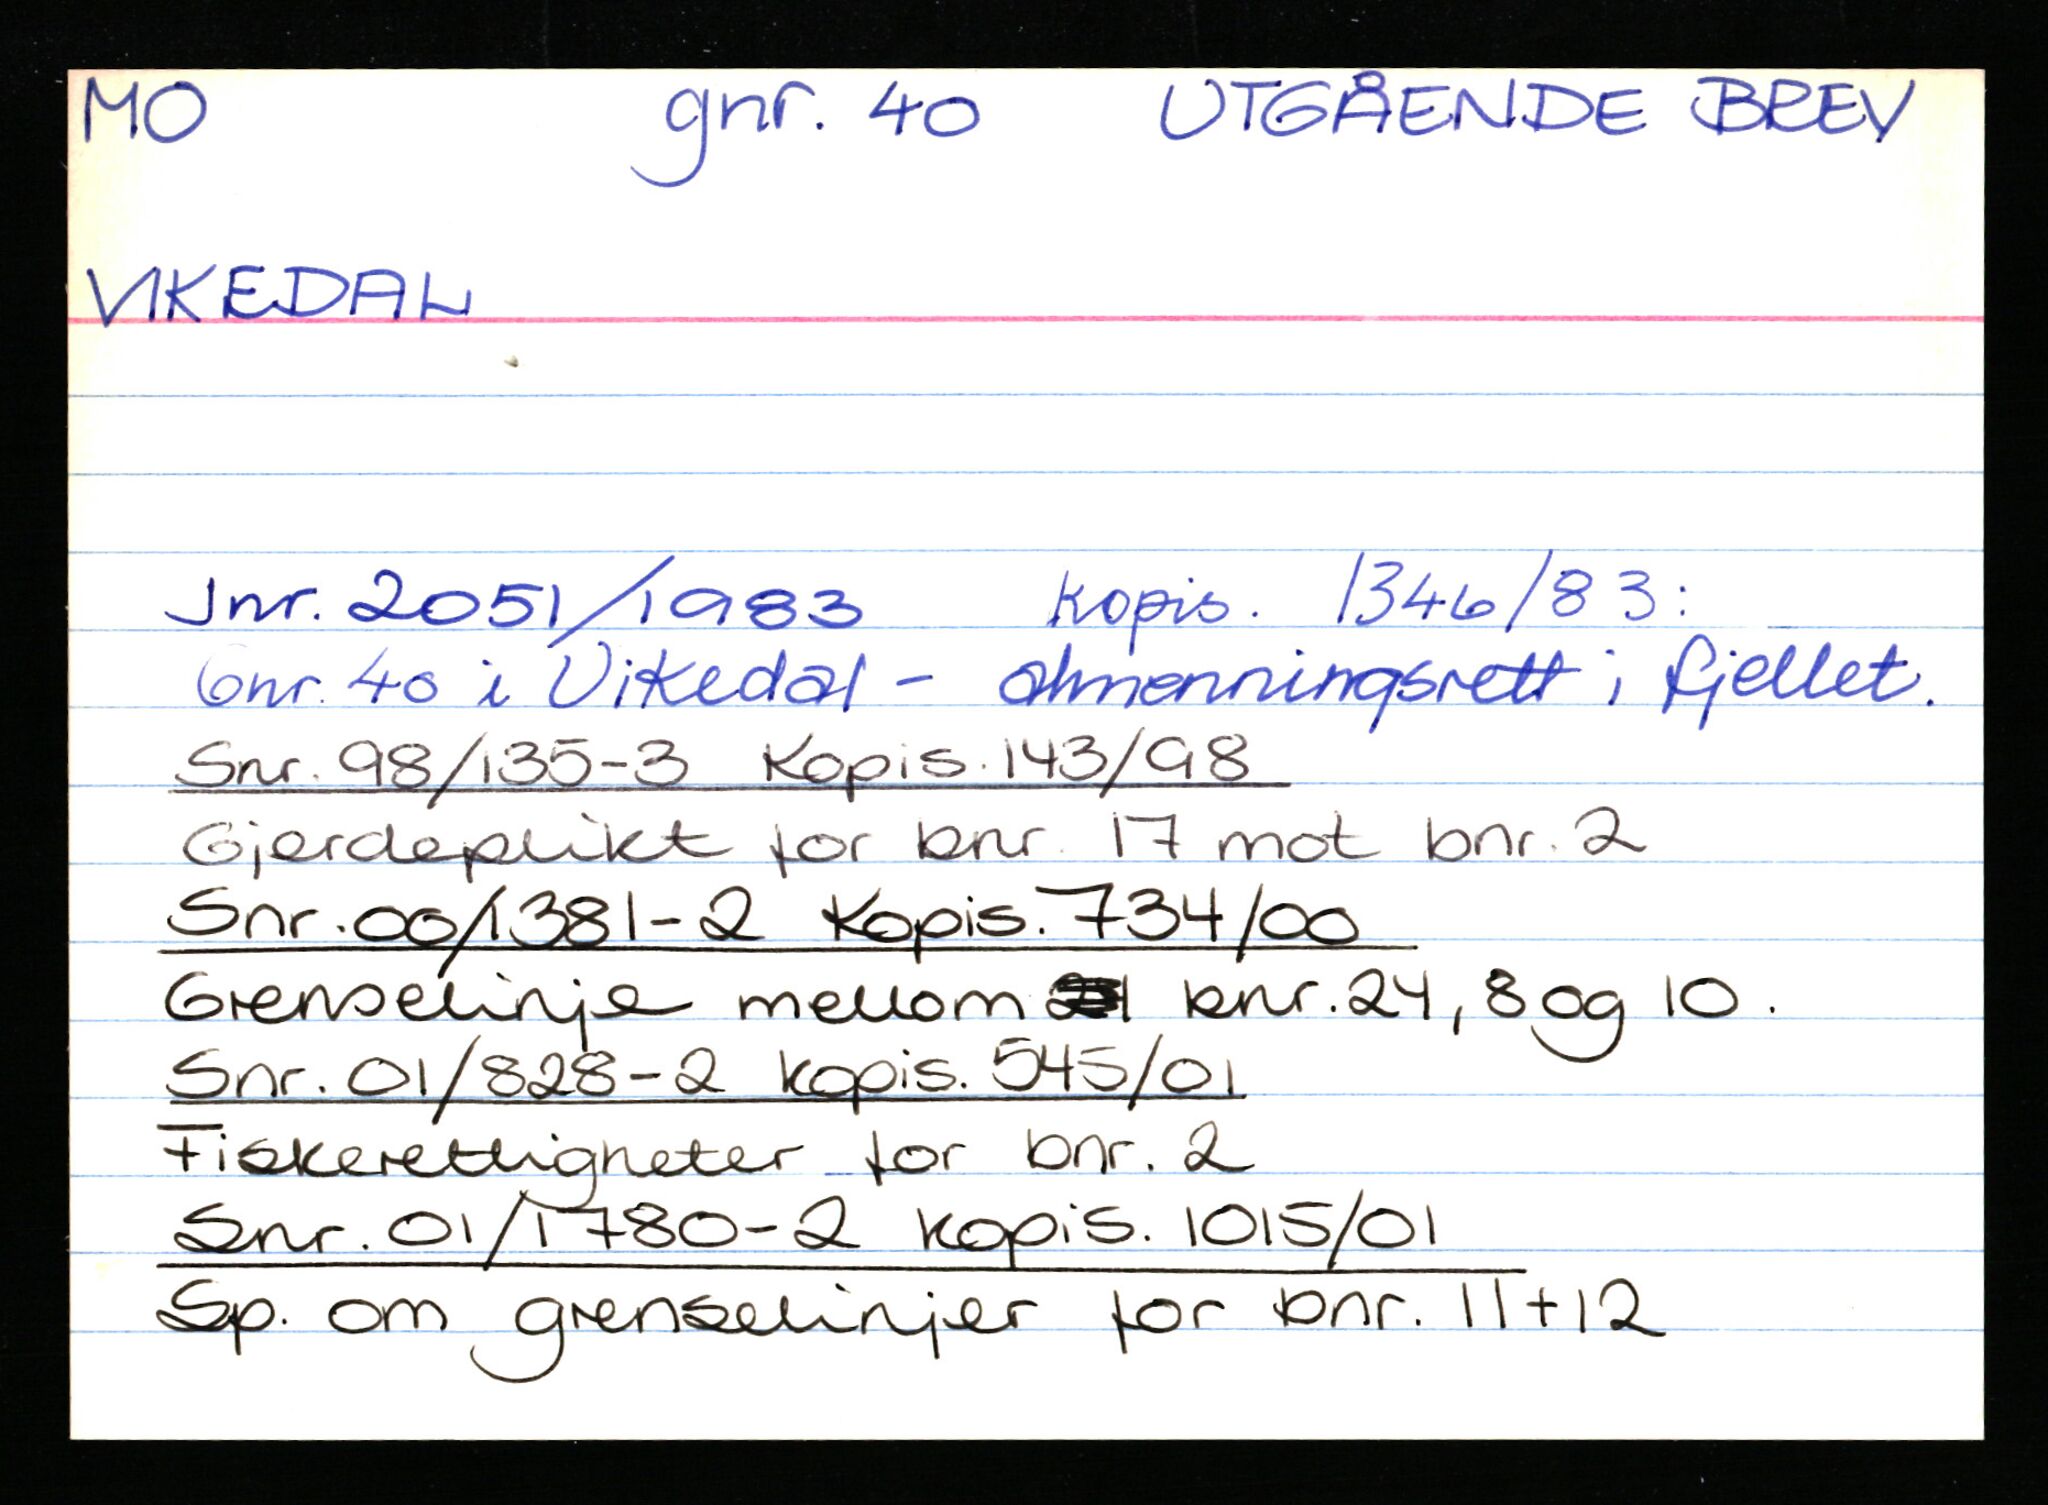 MO gnr. 40 UTGÅENDE BREV
VIKEDAL
Jnr. 2051/1983 kopis. 1346/83:
Gnr. 40 i Vikedal - almenningsrett i fjellet.
Snr. 98/135-3 Kopis. 143/98
Gjerdeplikt for bnr. 17 mot bnr. 2
Snr. 00/1381-2 Kopis. 734/00
Grenselinje mellom bnr. 24, 8 og 10.
Snr. 01/828-2 kopis. 545/01
Fiskerettigheter for bnr. 2
Snr. 01/1780-2 kopis. 1015/01
Sp. om grenselinjer for bnr. 11+12